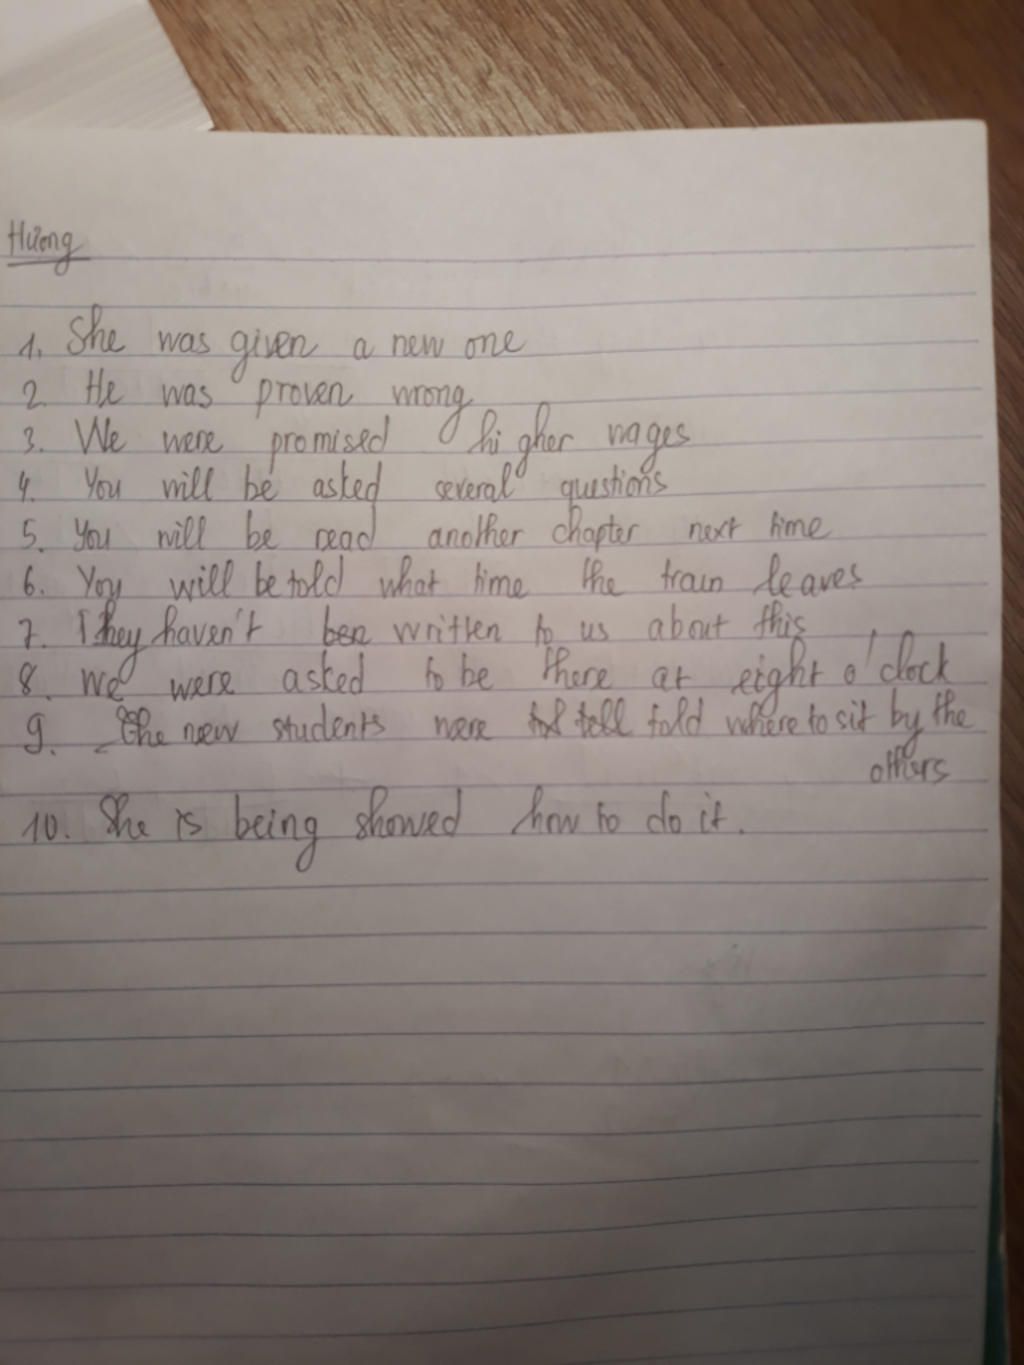 Hương
1. She was given a new one
2. He was proven wrong
3. We were promised higher wages
4. You will be asked several questions
5. You will be read another chapter next time
6. You will be told what time the train leaves
7. They haven't ben written to us about this
8. We were asked to be there at eight o'clock
9. The new students were tell told where to sit by the
others
10. She is being showed how to do it.